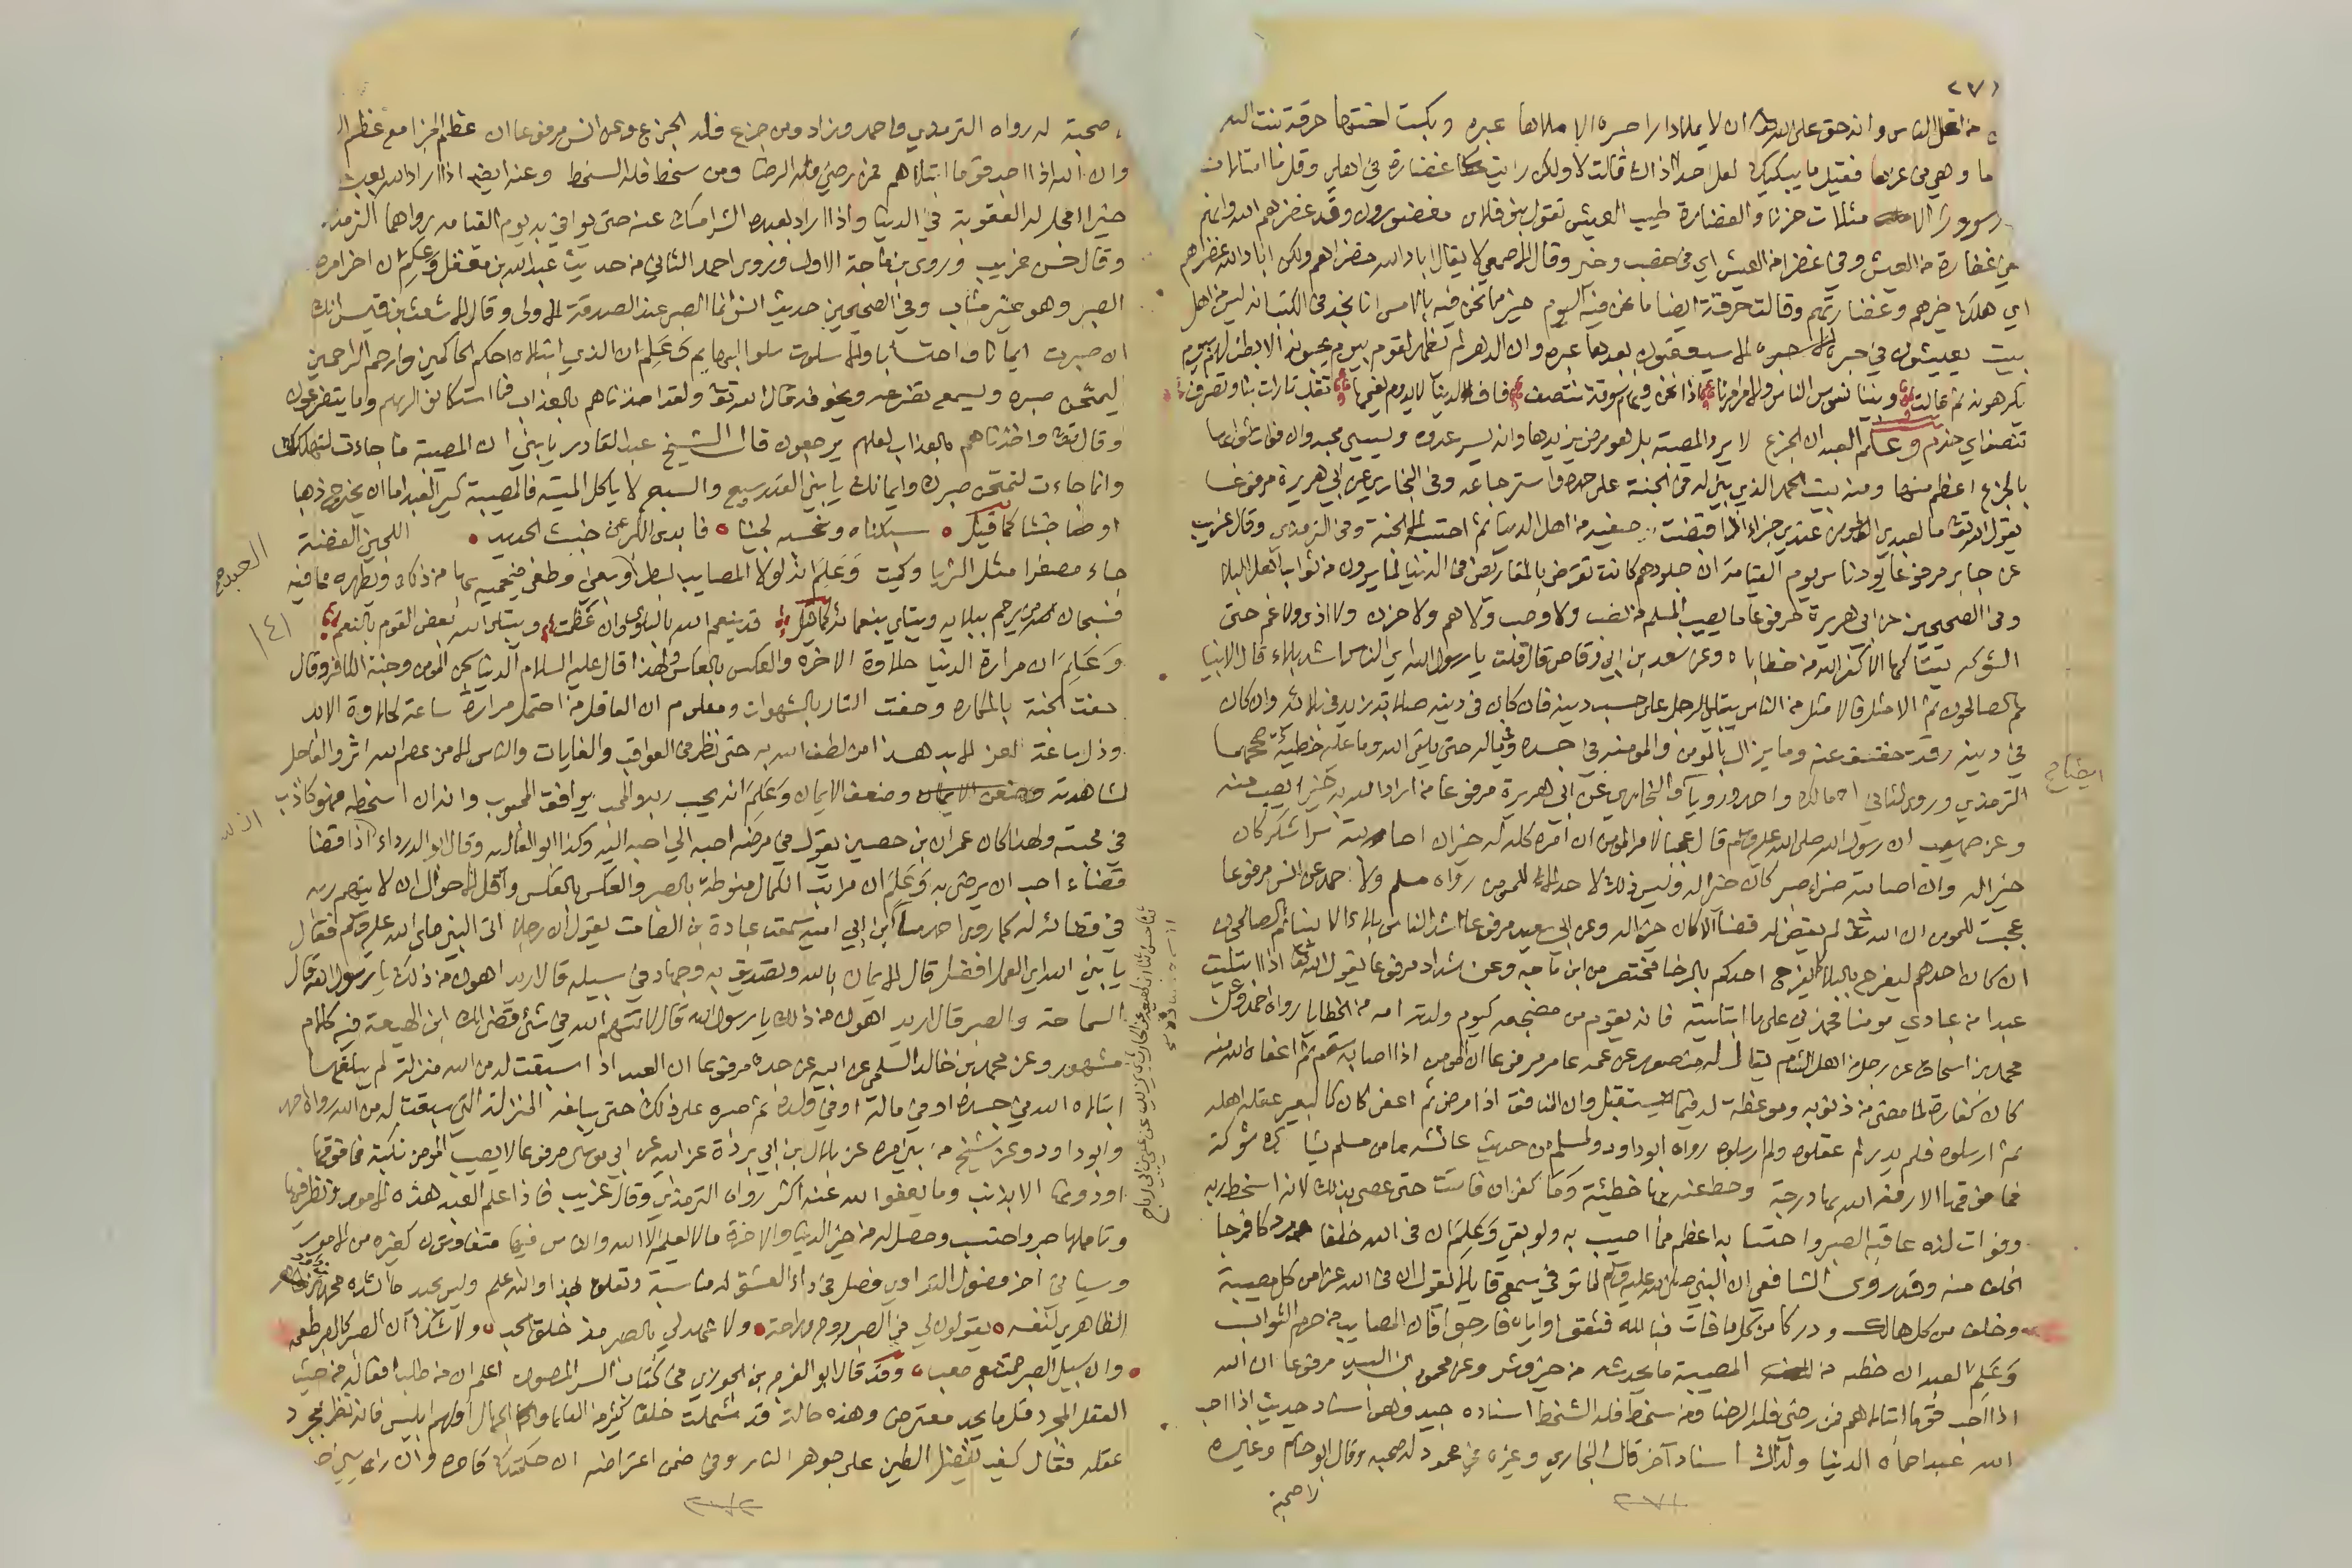 ٢٧١
من اهل الناس وانه حق على الله تعالى ان لا يملا دارا حبره الا ملاها عبره وبكت اختها حرقة بنت
ما وهي في عزها فقيل ما يبكيك لعل احدا اذاك قالت لا ولكن رايت غضارة في اهلي وقلما امتلات
حزنا والغضارة طيب العيش تقول بنو فلان مغضورون وقد غضرهم الله وانهم
في غضارة من العيش وفي غضرا من العيش اي في خصب وخير وقال الاصمعي لا يقال اباد الله خضراهم ولكن اباد الله غضراهم
اي هلك خيرهم وغضارتهم وقالت حرقة ايضا ما نحن فيه اليوم خير مما نحن فيه بالامس انا نجد في الكتب انه ليس من اهل
بيت يعيشون في حبرة الا سيعقبون بعدها عبره وان الدهر لم يظهر لقوم بيوم يحبونه الا بطن لهم بيوم
يكرهونه ثم قالت وبينا نسوس الناس والامر امرنا اذا نحن فيهم سوقة نتنصف فاف لدنيا لا يدوم نعيمها تقلب تارات بنا وتصرف
نتنصف اي نخدم وعلم العبد ان الجزع لا يرد المصيبة بل هو مرض يزيدها وانه يسر عدوه ويسيء محبه وان فوات ثوابها
بالجزع اعظم منها ومنه بيت الحمد الذي يبنى له في الجنة على حمده واسترجاعه وفي البخاري عن ابي هريرة مرفوعا
يقول الله تعالى ما لعبدي المؤمن عندي جزاء اذا قبضت صفيه من اهل الدنيا ثم احتسبه الا الجنة وفي الترمذي وقال غريب
عن جابر مرفوعا يود ناس يوم القيامة ان جلودهم كانت تقرض بالمقاريض في الدنيا لما يرون من ثواب اهل البلاء
وفي الصحيحين عن ابي هريرة مرفوعا ما يصيب المسلم من نصب ولا وصب ولا هم ولا حزن ولا اذى ولا غم حتى
الشوكه يشاكها الا كفر الله من خطاياه وعن سعد بن ابي وقاص قال قلت يا رسول الله اي الناس اشد بلاء قال الانبيا
ثم الصالحون ثم الامثل فالامثل من الناس يبتلى الرجل على حسب دينه فان كان في دينه صلابة زيد في بلائه وان كان
في دينه رقة خفف عنه وما يزال بالمؤمن والمؤمنه في جسده وفي ماله حتى يلقى الله وما عليه خطيئة صححهما
الترمذي وروى الثاني مالك واحمد ورويا والبخاري عن ابي هريرة مرفوعا من اراد الله به خيرا يصب منه
وعن صهيب ان رسول الله صلى الله عليه وسلم قال عجبا لامر المؤمن ان امره كله له خير ان اصابته سرا شكر كان
خيرا له وان اصابته ضراء صبر كان خيرا له وليس ذلك لاحد الا للمؤمن رواه مسلم ولاحمد عن انس مرفوعا
عجبت للمومن ان الله تعالى لم يقض له قضا الا كان خيرا له وعن ابي سعيد مرفوعا اشد الناس بلاء الانبياء ثم الصالحون
ان كان احدهم ليفرح بالبلاء كما يفرح احدكم بالرخا مختصر من ابن ماجه وعن شداد مرفوعا يقول الله تعالى اذا ابتليت
عبدا من عبادي مومنا فحمدني على ما ابتليته فانه يقوم من مضجعه كيوم ولدته امه من الخطايا رواه احمد وعن
محمد بن اسحاق عن رجل من اهل الشام يقال له منصور عن عمه عامر مرفوعا ان المومن اذا اصابه سقم ثم اعفاه الله منه
كان كفارة لما مضى من ذنوبه وموعظة له فيما يستقبل وان المنافق اذا مرض ثم اعفي كان كالبعير عقله اهله
ثم ارسلوه فلم يدر لم عقلوه ولم ارسلوه رواه ابو داود ولمسلم من حديث عائشه ما من مسلم يشاك شوكة
فما فوقها الا رفعه الله بها درجة وحط عنه بها خطيئة وما كفران فائت حتى عصى بذلك لانه اسخط ربه
وفوات لذة عاقبة الصبر واحتسابه اعظم مما اصيب به ولو بقي وعلم ان في الله خلفا ودركا فرجا
الخلف منه وقد روى الشافعي ان النبي صلى الله عليه وسلم لما توفي سمع قايلا يقول ان في الله عزا من كل مصيبة
وخلف من كل هالك ودركا من كل ما فات فبالله فثقوا واياه فارجوا فان المصاب من حرم الثواب
وعلم العبد ان حظه من المصيبة ما يحدث له من خير وشر وعن محمود بن لبيد مرفوعا ان الله
اذا احب قوما ابتلاهم فمن رضي فله الرضا ومن سخط فله السخط اسناده جيد وهو اسناد حديث اذا احب
الله عبدا حماه الدنيا ولذلك اسناد آخر قال البخاري وغيره في محمود له صحبه وقال ابو حاتم وغيره
لا صحبة
ايضاح
٢٧١
صحبة له رواه الترمذي واحمد وزاد ومن جزع فله الجزع وعن انس مرفوعا ان عظم الجزا مع عظم
وان الله اذا احب قوما ابتلاهم فمن رضي فله الرضا ومن سخط فله السخط وعنه ايضا اذا اراد الله بعبده
خيرا عجل له العقوبة في الدنيا واذا اراد بعبده الشر امسك عنه حتى يوافي به يوم القيامه رواهما الترمذي
وقال حسن غريب وروى بن ماجة الاول وروى احمد الثاني من حديث عبد الله بن مغفل وعلم ان اخر امره
الصبر وهو غير مثاب وفي الصحيحين حديث انس انما الصبر عند الصدمة الاولى وقال الاشعث بن قيس انك
ان صبرت ايمانا واحتسابا والا سلوت سلو البهايم وعلم ان الذي ابتلاه احكم الحاكمين وارحم الراحمين
ليمتحن صبره ويسمع تضرعه وخوفه قال الله تعالى ولقد اخذناهم بالعذاب فما استكانوا لربهم وما يتضرعون
وقال تعالى واخذناهم بالعذاب لعلهم يرجعون قال الشيخ عبد القادر يا بني ان المصيبة ما جاءت لتهلكك
وانما جاءت لتمتحن صبرك وايمانك يا بني القدر سبع والسبع لا ياكل الميتة فالمصيبة كير العبد اما ان يخرج ذهبا
او خبثا كما قيل • سبكناه ونحسبه لجينا • فابدى الكير عن خبث الحديد • اللجين الفضة
جاء مصغرا مثل الثريا وكميت وعلم انه لولا المصايب لبطر العبد وبغى وطغى فيحميه بها من ذلك ويطهره مما فيه
فسبحان من يرحم ببلايه ويبتلي بنعمائه كما قيل قد ينعم الله بالبلوى وان عظمت ويبتلي الله بعض القوم بالنعم
وعلم ان مرارة الدنيا حلاوة الاخره والعكس بالعكس ولهذا قال عليه السلام الدنيا سجن المومن وجنة الكافر وقال
حفت الجنة بالمكاره وحفت النار بالشهوات ومعلوم ان العاقل من احتمل مرارة ساعة لحلاوة الابد
وذل ساعة لعز الابد هذا من لطف الله به حتى نظر في العواقب والغايات والناس الا من عصم الله اثر والعاجل
لمشاهدته وضعف الايمان وعلم انه يحب ربه والمحب يوافق المحبوب وانه ان اسخطه فهو كاذب
في محبته ولهذا كان عمران بن حصين يقول في مرضه احبه الي احبه اليه وكذا ابو العاليه وقال ابو الدرداء اذا قضا
قضاء احب ان يرضى به وعلم ان مراتب الكمال منوطة بالصبر والعكس بالعكس واقل الاحوال ان لا يتهم ربه
في قضائه له كما روى احمد ابن ابي اميه سمعت عبادة بن الصامت يقول ان رجلا اتى النبي صلى الله عليه وسلم فقال
يا نبي الله اي العمل افضل قال الايمان بالله وتصديق به وجهاد في سبيله قال اريد اهون من ذلك يا رسول الله قال
السماحة والصبر قال اريد اهون من ذلك يا رسول الله قال لا تتهم الله في شئ قضى لك ابن لهيعة فيه كلام
مشهور وعن محمد بن خالد السلمي عن ابيه عن جده مرفوعا ان العبد اذا سبقت له من الله منزلة لم يبلغها
ابتلاه الله في جسده او في ماله او في ولده ثم صبره على ذلك حتى يبلغه المنزلة التي سبقت له من الله رواه احمد
وابو داود وعن شيخ من بني مرة عن بلال بن ابي بردة عن ابيه عن ابي موسى مرفوعا لا يصيب المومن نكبة فما فوقها
او دونها الا بذنب وما يعفو الله عنه اكثر رواه الترمذي وقال غريب فاذا علم العبد هذه الامور ونظر فيها
وتاملها صبر واحتسب وحصل له من خير الدنيا والاخرة ما لا يعلمه الا الله والناس فيها متفاوتون كغيره من الامور
وسياتي في اخر فصول التداوي فصل في داء العشق له مناسبة وتعلق بهذا والله اعلم
الظاهري لنفسه • يقولون لي في الصبر روح وراحة • ولا عهد لي بالصبر مذ خلق الحب • ولا شك ان الصبر كالصبر طعمه
• وان سبيل الصبر ممتنع صعب • وقد قال ابو الفرج بن الجوزي في كتاب السر المصون اعلم ان من طلب افعاله من حيث
العقل المجرد فلم يجد يعترض وهذه حالة قد شملت خلقا كثيرا من العلما والجهال اولهم ابليس فانه نظر بمجرد
عقله فقال كيف يفضل الطين على جوهر النار وفي ضمن اعتراضه ان حكمتك قاصره وان رايي
العبد صح
١٤١
٢٧٢